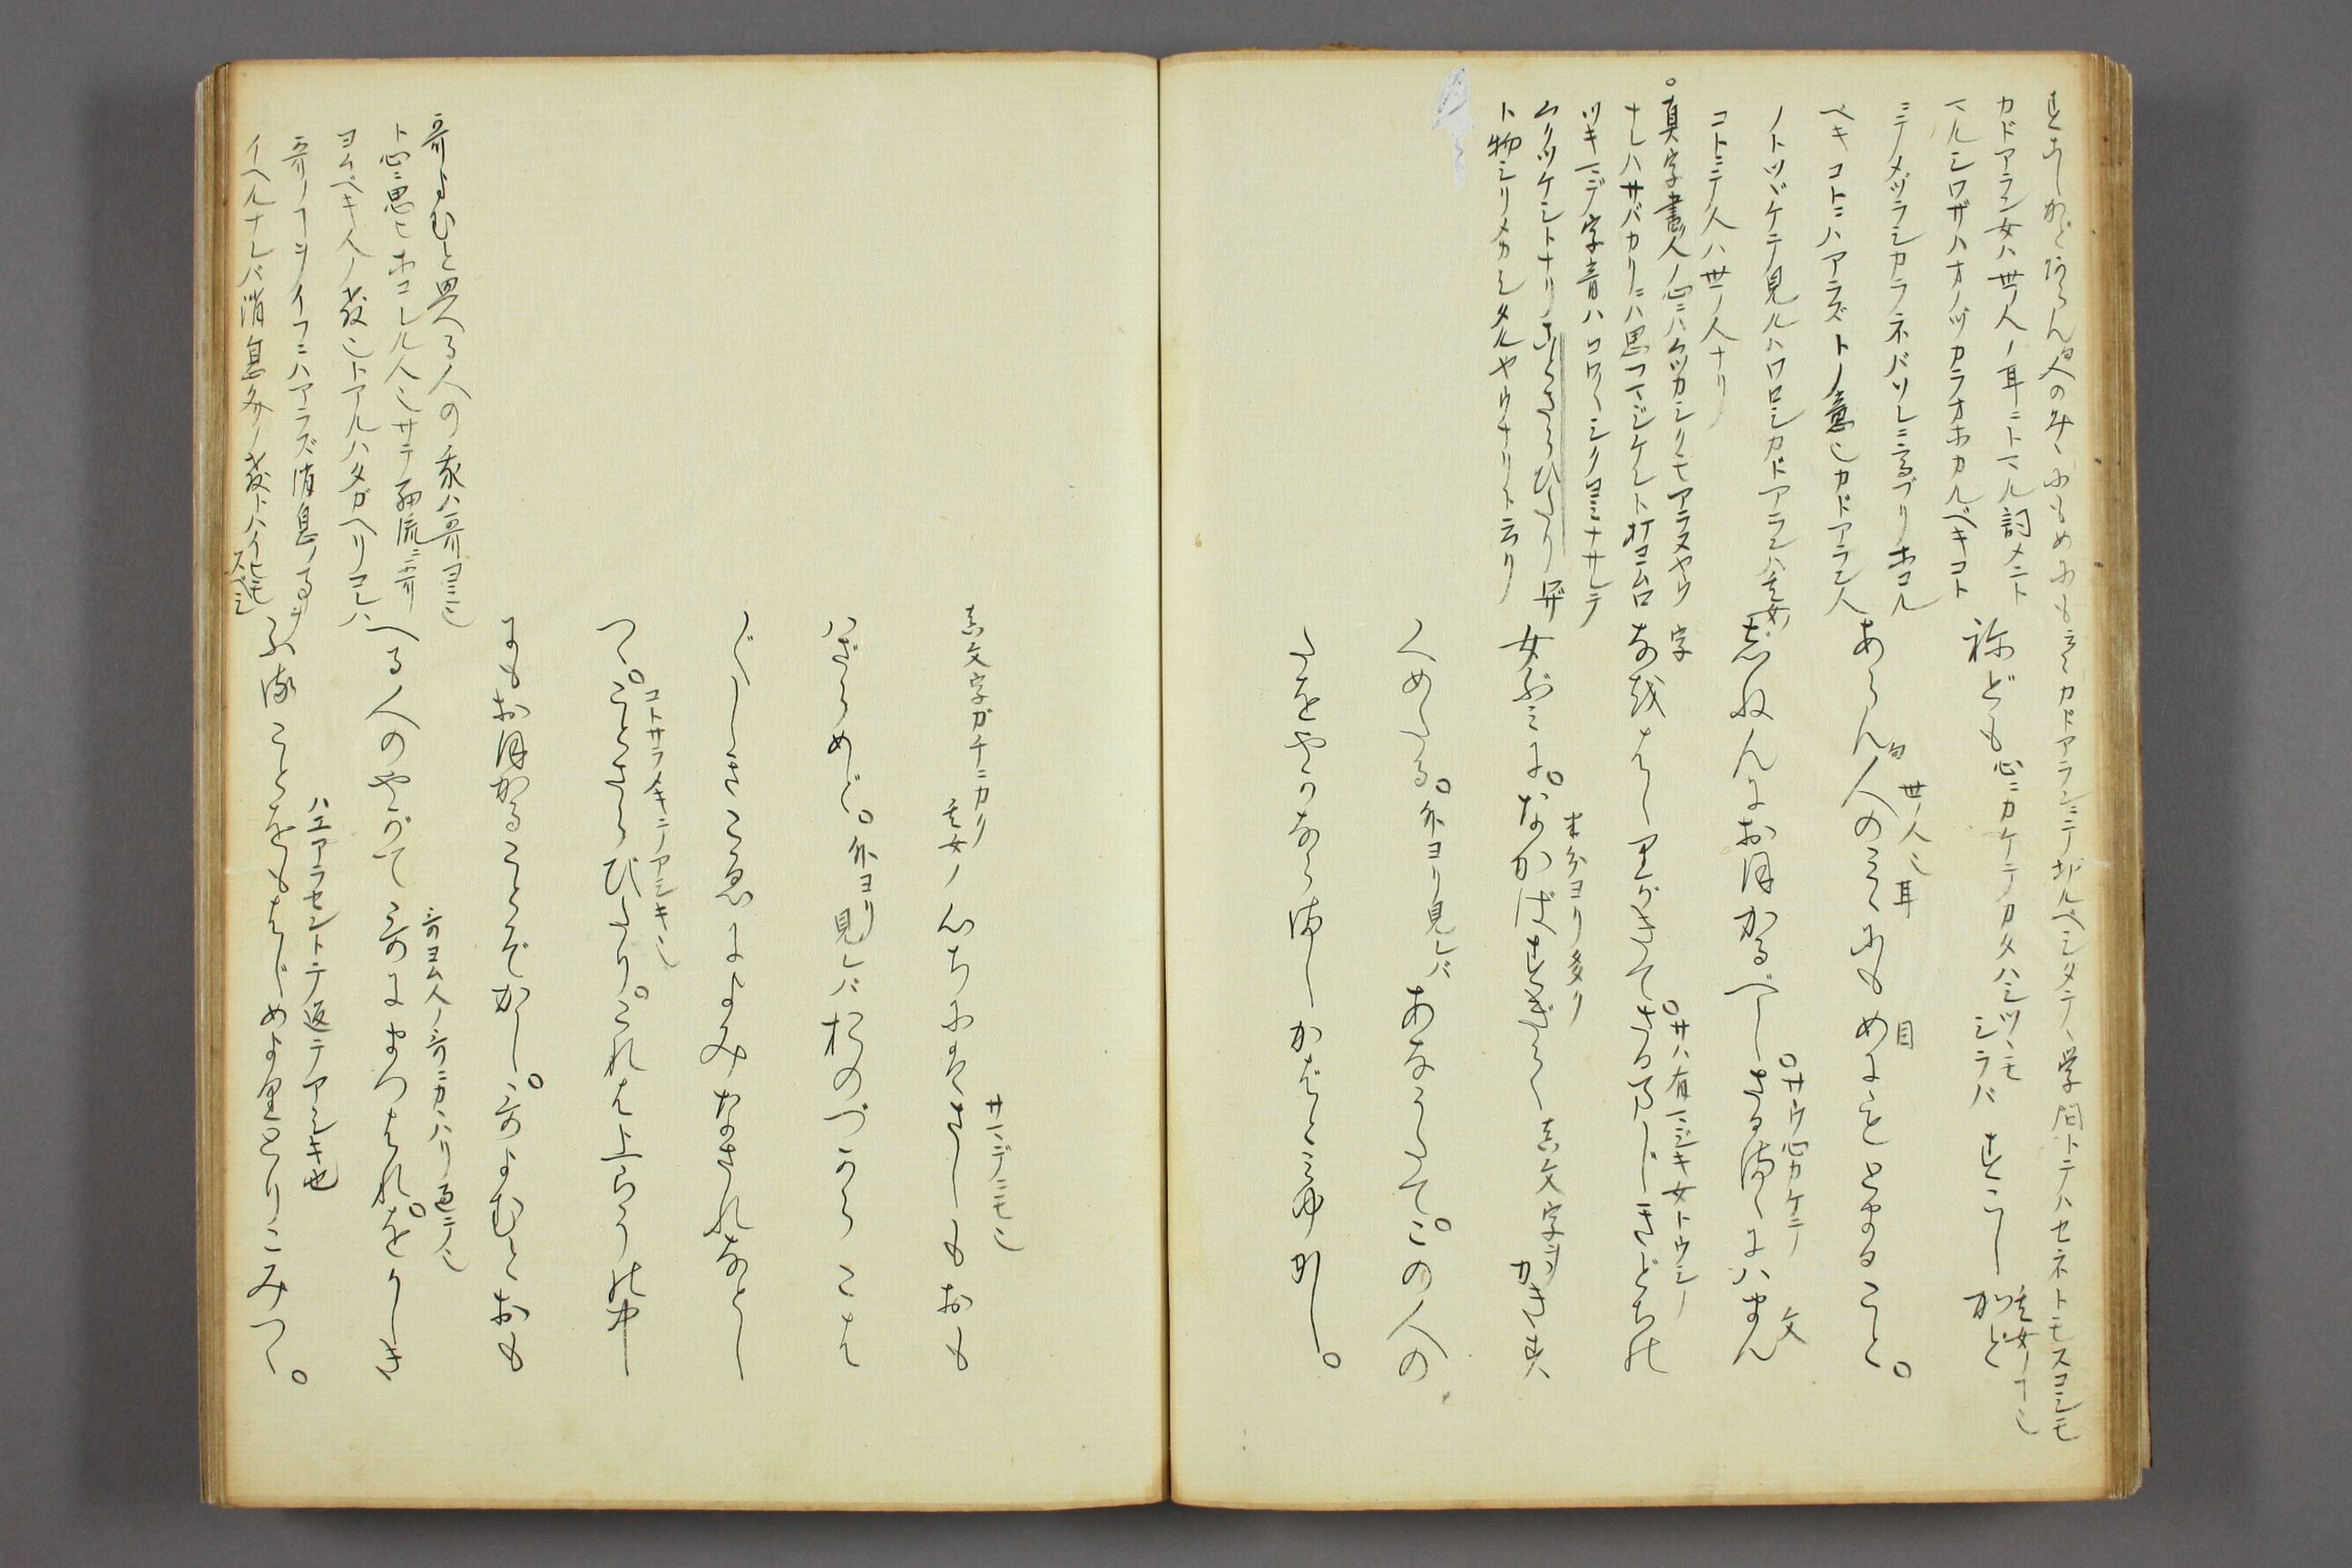 すこしかどあらん人のみゝにもめにも云々カドアランニテ切ルベシタテヽ学問トテハセネトモスコシモ
カドアラン女ハ世ノ人ノ耳ニトマル詞メニト
マルシワザハオノヅカラオホカルベキコト
ニテメヅラシカラネバソレニ
ベキコトニハアラズトノ意也カドアラン人
ノトツヾケテ見ルハワロシカドアランハ其女ノ
コトニテ人ハ世ノ人ナリ
○真字書人ノ心ニハムツカシクモアラヌヤウ
ナレハサバカリニハ思フマジケレト打ヨム口
ツキマデ字音ハコワ〳〵シクヨミナサレテ
ムクツケシトナリことさらひたり
ト物シリメカシタルヤウナリトナリ
ねども心ニカケテカタハシツヽモシラバすこしかど
其女ノコト也
あらん人のみゝにもめにもとまること。
句 世ノ人也 耳 目
志ねんにおほかるべし。サウ心カケテさるまゝにハまん
文字
なをはしりがきて。サハ有マジキ女トウシノさるまじきどちの
女ぶミに。なかばすぎて真文字ヲかきすゝ
半分ヨリ多ク
くめたる。外ヨリ見レバあなうたて。この人の
たをやかならましかばとみゆかし。
真文字ガチニカク
其女ノ心ちにはさしもおも
サマデニモ也
ハざらめど。外ヨリ見レバおのづからこは
〴〵しきこゑによみなされなどし
つゝ。ことさらびたり。これは上らうの中
コトサラメキテアシキ也
にもおほかることぞかし。哥よむとおも
へる人のやがて哥にまつはれ。をかしき
哥ヨム人ノ哥ニカヽハリ過テ也
ふるきことをもはじめよりとりこみつゝ。
ハエアラセントテ返テアシキ也
哥よむと思へる人の 我ハ哥ヨミ也
ト心ニ思ヒホコレル人也サテ
ヨムベキ人ノ
哥ノコトヲイフニハアラズ消息ノ
イヘルナレバ消息